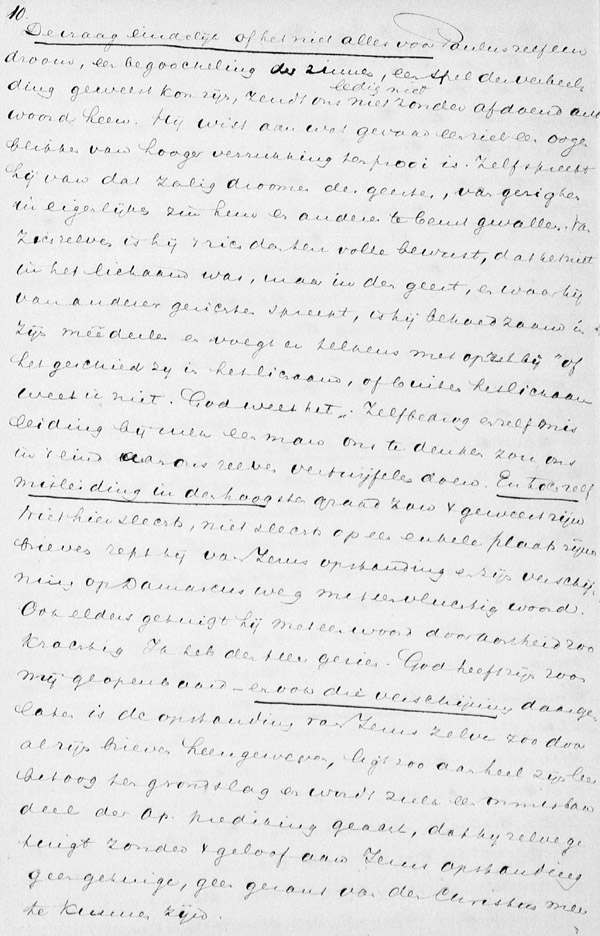 10.
De vraag eindelijk of het niet alles voor Paulus zelf een
droom, een begoocheling der zinnen, een spel der verbeel
ding geweest kon zijn, zendt ons ledig niet niet zonder afdoend ant
woord heen. Hij wist aan wat gevaar een ziel in oogen
blikken van hooger verrukking ter prooi is. Zelf spreekt
hij van dat zalig droomen der geesten, van gezigten
in eigenlijken zin hem en anderen te beurt gevallen.
zelven is hij ten volle bewust, dat het niet
in het lichaam was, maar in den geest, en waar hij
van anderen gezichten spreekt, is hij behoedzaam in
zijn meêdeelen en voegt er telkens met opzet bij "of
het geschied zij in het lichaam, of buiten het lichaam
weet ik niet. God weet het". Zelfbedrog en zelfmis
leiding bij zulk een man ons te denken zou ons
in 't eind aan ons zelven vertwijfelen doen. En toch zelf
misleiding in den hoogsten graad zou 't geweest zijn
Niet hier slechts, niet slechts op een enkele plaats zijner
brieven rept hij van Jezus opstanding en zijn verschij
ning op Damascus weg met een vluchtig woord.
Ook elders getuigt hij met een woord door waarheid zoo
krachtig Ik heb den Heer gezien. God heeft zijn zoon
mij geopenbaard – en ook die verschijning daarge
laten is de opstanding van Jezus zelve zoo door
al zijn brieven heengeweven, ligt zoo aan heel zijn leer
betoog ten grondslag en wordt zulk een onmisbaar
deel der ap. prediking geacht, dat hij zelve ge
tuigt zonder 't geloof aan Jezus opstanding
geen getuige, geen gezant van den Christus meer
te kunnen zijn.